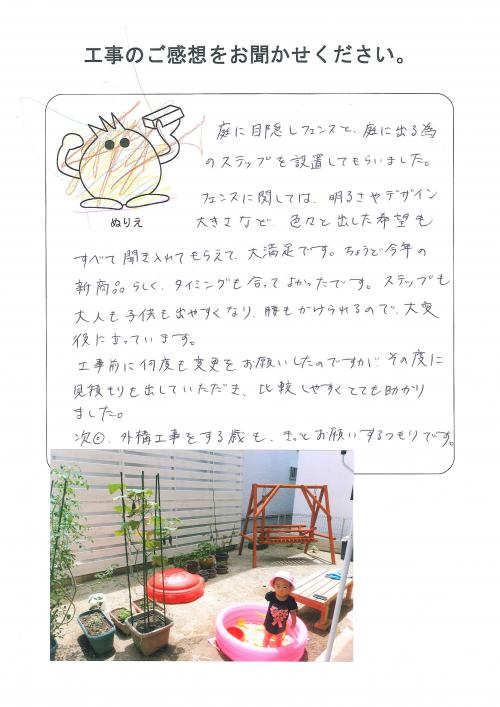 工事のご感想をお聞かせください。
ぬりえ
庭に目隠しフェンスと、庭に出る為
のステップを設置してもらいました。
フェンスに関しては、明るさやデザイン
大きさなど、色々と出した希望も
すべて聞き入れてもらえて、大満足です。ちょうど今年の
新商品らしく、タイミングも合ってよかったです。ステップも
大人も子供も出やすくなり、腰もかけられるので、大変
役に立っています。
工事前に何度も変更をお願いしたのですが、その度に
見積もりも出していただき、比較しやすくとても助かり
ました。
次回、外構工事をする際も、きっとお願いするつもりです。